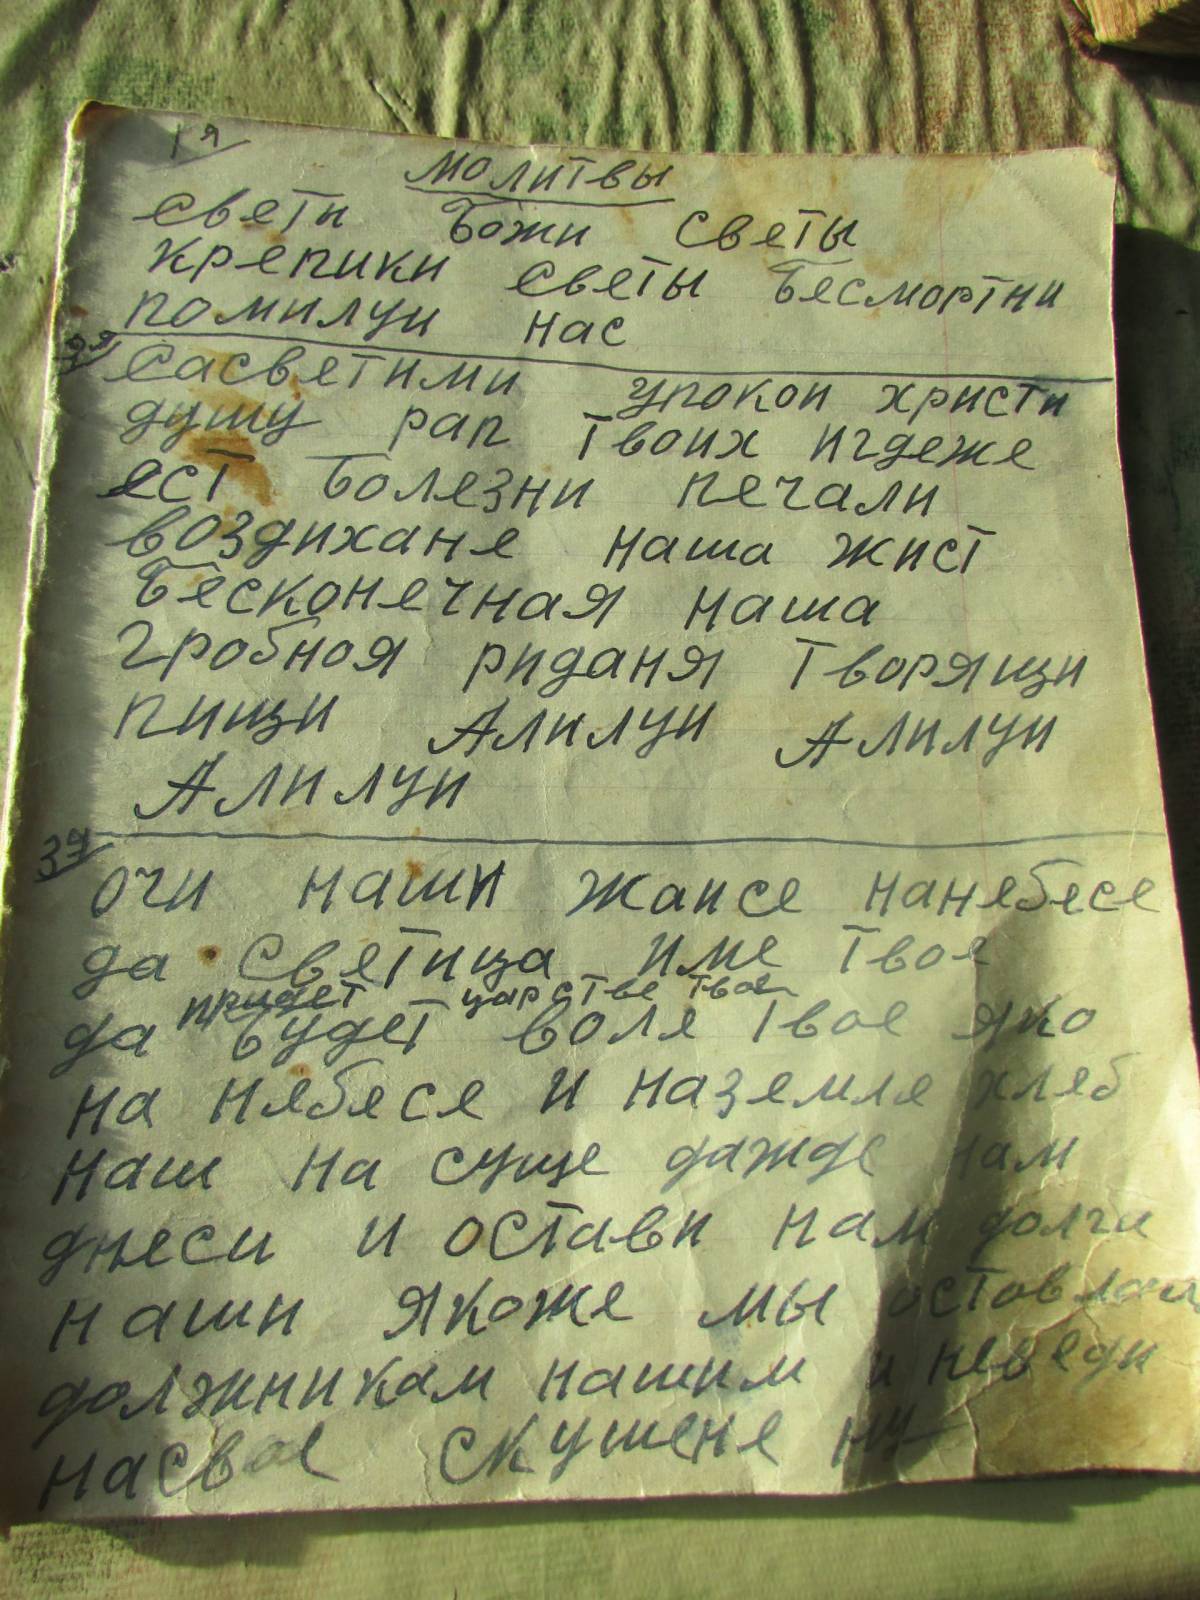 1я
молитвы
светы Божи светы
крепики светы Бесмортни
помилуи нас
2я
сасветими упокои христи
душу рап твоих игдеже
ест Болезни печали
воздихане наша жист
Бесконечная наша
гробноя риданя творящи
пищи Алилуи Алилуи
Алилуи
3я
очи наши жаисе нанебесе
да светища име твое
придет царстве твое
да будет воле твое яко
на небесе и наземле хлеб
наш на суще дажде нам
днеси и остави нам долги
наши якоже мы
должникам нашим и невведи
скушене ну